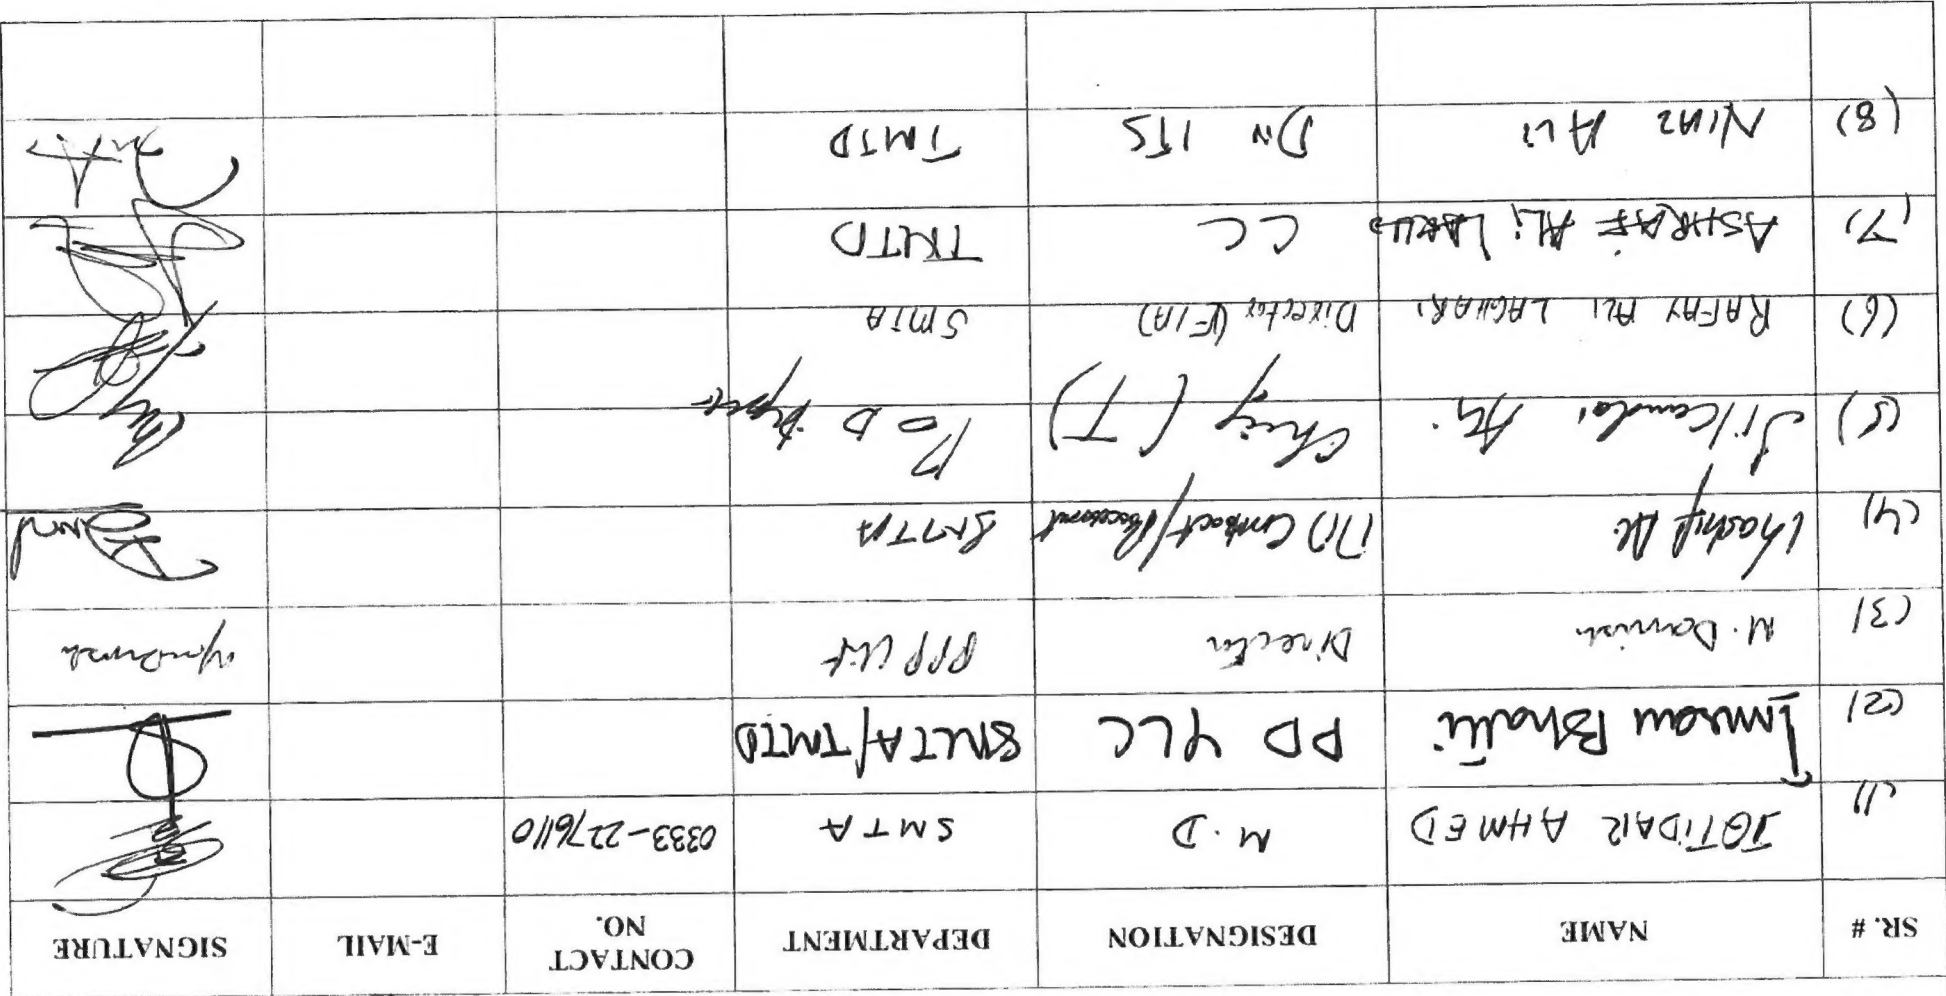 SR. # NAME DESIGNATION DEPARTMENT CONTACT NO. E-MAIL SIGNATURE
(1) IQTIDAR AHMED M.D SMTA 0333-2276110
(2) Imran Bhatti PD YLC SMTA/TMTD
(3) M. Darwish Director PPP Unit
(4) Khadif Ali Contract/ SMTA
(5) Ali Chief (T) P & D
(6) RAFAY ALI LAGHARI Director (F/A) SMTA
(7) ASHRAF ALi CC TMTD
(8) NIAZ ALi ITS TMTD